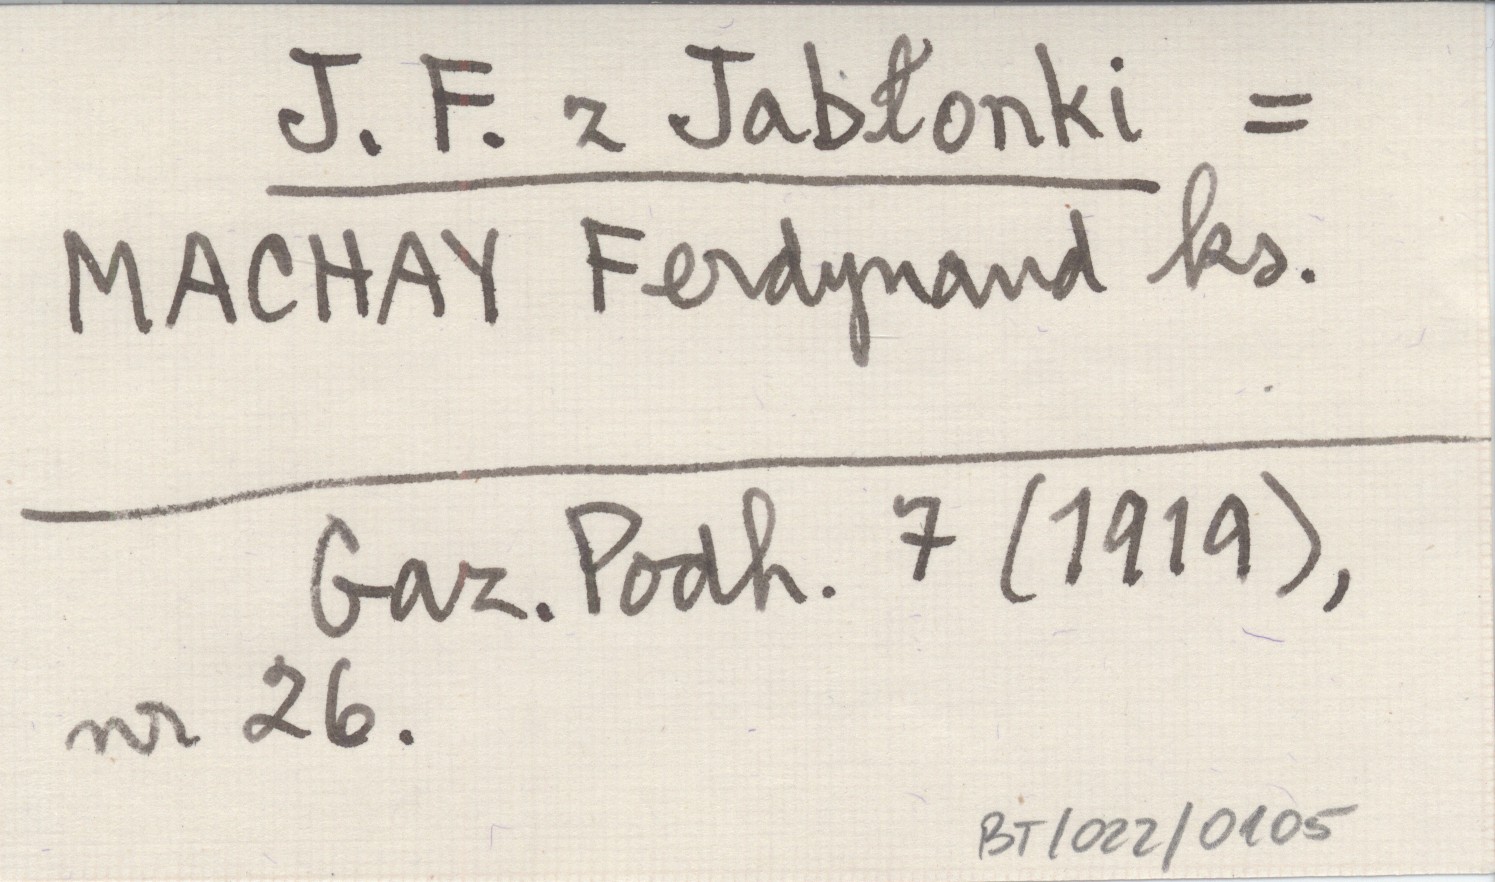 J. F. z Jabłonki =
MACHAY Ferdynand ks.
Gaz. Podh. 7 (1919),
nr 26.
BT/022/0105